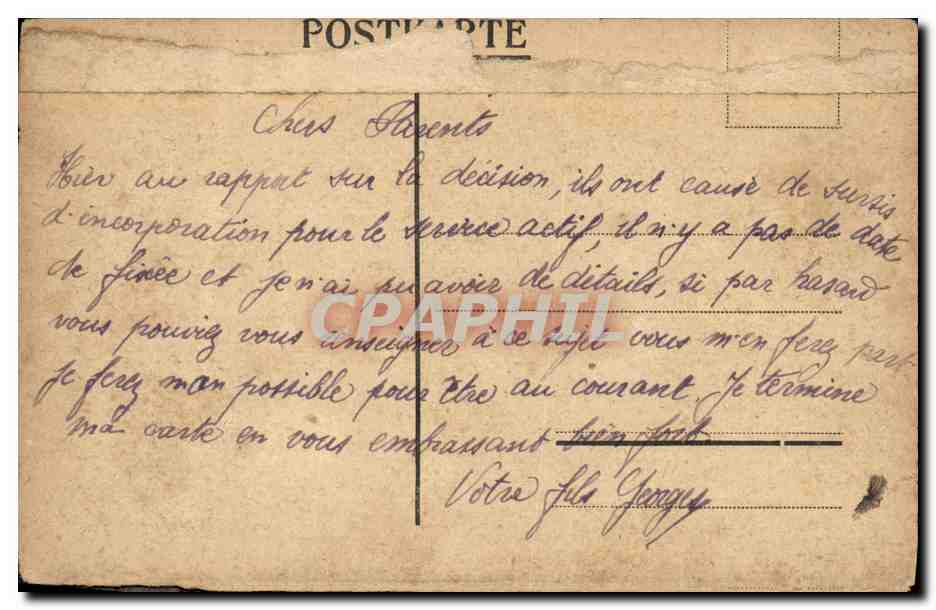 POSTKARTE
Chers Parents
Hier au rapport sur la décision, ils ont causé de sursis
d'incorporation pour le service actif, il n'y a pas de date
de fixée et je n'ai pu avoir de détails, si par hasard
vous pouviez vous renseigner à ce sujet vous m'en ferez part
je ferez mon possible pour être au courant. Je termine
ma carte en vous embrassant bien fort.
Votre fils Georges
CPAPHIL